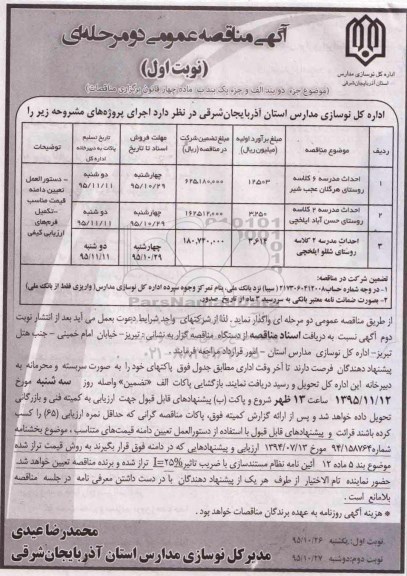 آگهی مناقصه عمومی دو مرحله‌ای
(نوبت اول)
(موضوع جزء دو بند الف و جزء یک بند ب ماده چهار قانون برگزاری مناقصات)
اداره کل نوسازی مدارس
استان آذربایجان‌شرقی
اداره کل نوسازی مدارس استان آذربایجان‌شرقی در نظر دارد اجرای پروژه‌های مشروحه زیر را
ردیف موضوع مناقصه مبلغ برآورد اولیه (میلیون ریال) مبلغ تضمین شرکت در مناقصه (ریال) مهلت فروش اسناد تا تاریخ تاریخ تسلیم پاکات به دبیرخانه اداره کل توضیحات
۱ احداث مدرسه ۶ کلاسه روستای هرگلان عجب شیر ۱۲۵۰۳ ۶۲۵۱۸۰,۰۰۰ چهارشنبه ۹۵/۱۰/۲۹ دو شنبه ۹۵/۱۱/۱۱
۲ احداث مدرسه ۲ کلاسه روستای حسن آباد ایلخچی ۳۲۵۰ ۱۶۲۵۱۲,۰۰۰ چهارشنبه ۹۵/۱۰/۲۹ دو شنبه ۹۵/۱۱/۱۱
۳ احداث مدرسه ۲ کلاسه روستای شللو ایلخچی ۳,۶۱۴ ۱۸۰,۷۲۰,۰۰۰ چهارشنبه ۹۵/۱۰/۲۹ دو شنبه ۹۵/۱۱/۱۱
- دستورالعمل تعیین دامنه قیمت مناسب
-تکمیل فرم‌های ارزیابی کیفی
تضمین شرکت در مناقصه:
۱- در وجه شماره حساب ۲۱۷۳۰۶۰۳۱۲۰۰۸ (سیبا) نزد بانک ملی، بنام تمرکز وجوه سپرده اداره کل نوسازی مدارس (واریزی فقط از بانک ملی)
۲- بصورت ضمانت نامه معتبر بانکی به سررسید ۳ ماه از تاریخ صدور.
از طریق مناقصه عمومی دو مرحله ای واگذار نماید. لذا از شرکتهای واجد شرایط دعوت بعمل می آید بعد از انتشار نوبت
دوم آگهی نسبت به دریافت اسناد مناقصه از دستگاه مناقصه گزار به نشانی: تبریز- خیابان امام خمینی - جنب هتل
تبریز- اداره کل نوسازی مدارس استان - امور قرارداد مراجعه فرمایند.
پیشنهاد دهندگان فرصت دارند تا آخر وقت اداری مطابق جدول فوق پاکتهای خود را به صورت سربسته و محرمانه به
دبیرخانه این اداره کل تحویل و رسید دریافت نمایند. بازگشایی پاکات الف «تضمین» واصله روز سه شنبه مورخ
۱۳۹۵/۱۱/۱۲ ساعت ۱۳ ظهر شروع و پاکت (ب) پیشنهادهای قابل قبول جهت ارزیابی به کمیته فنی و بازرگانی
تحویل داده خواهد شد و پس از ارائه گزارش کمیته فوق، پاکات مناقصه گرانی که حداقل نمره ارزیابی (۶۵) را کسب
کرده باشند قرائت و پیشنهادهای قابل قبول با استفاده از دستورالعمل تعیین دامنه قیمت‌های متناسب ، موضوع بخشنامه
شماره ۹۴/۱۵۸۷۶۲ مورخ ۱۳۹۴/۰۷/۱۳ ارزیابی و پیشنهادهایی که در دامنه فوق قرار بگیرند به روش قیمت تراز شده
موضوع بند ۵ ماده ۱۲ آئین نامه نظام مستندسازی با ضریب تاثیر I=۲۵% تراز شده و برنده مناقصه تعیین خواهد شد.
حضور نماینده تام الاختیار از طرف هر یک از پیشنهاد دهندگان با در دست داشتن معرفی نامه در جلسه مناقصه
بلامانع است .
* هزینه آگهی روزنامه به عهده برندگان مناقصات خواهد بود.
محمدرضا عیدی
مدیرکل نوسازی مدارس استان آذربایجان‌شرقی
نوبت اول:یکشنبه ۹۵/۱۰/۲۶
نوبت دوم:دوشنبه ۹۵/۱۰/۲۷